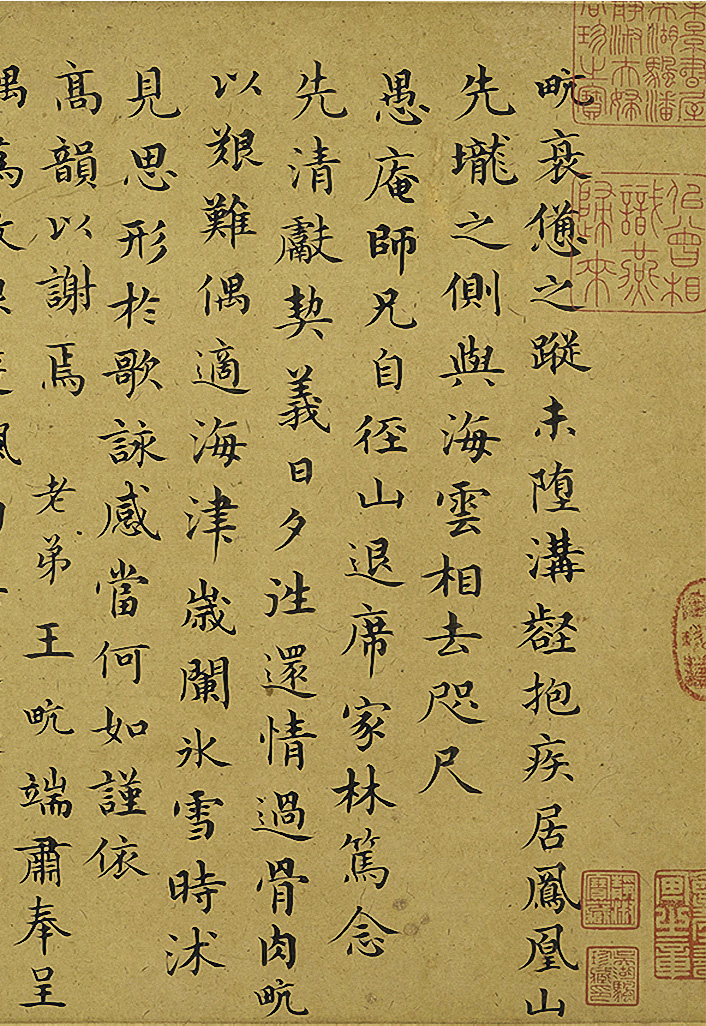 畮衰憊之蹤未堕溝壑抱疾居鳳凰山
先壠之側與海雲相去咫尺
愚庵師兄自徑山退席家林篤念
先清獻契義日夕往還情過骨肉畮
以艱難偶適海津歲闌氷雪時沭
見思形於歌詠感當何如謹依
髙韻以謝焉 老弟王畮端肅奉呈